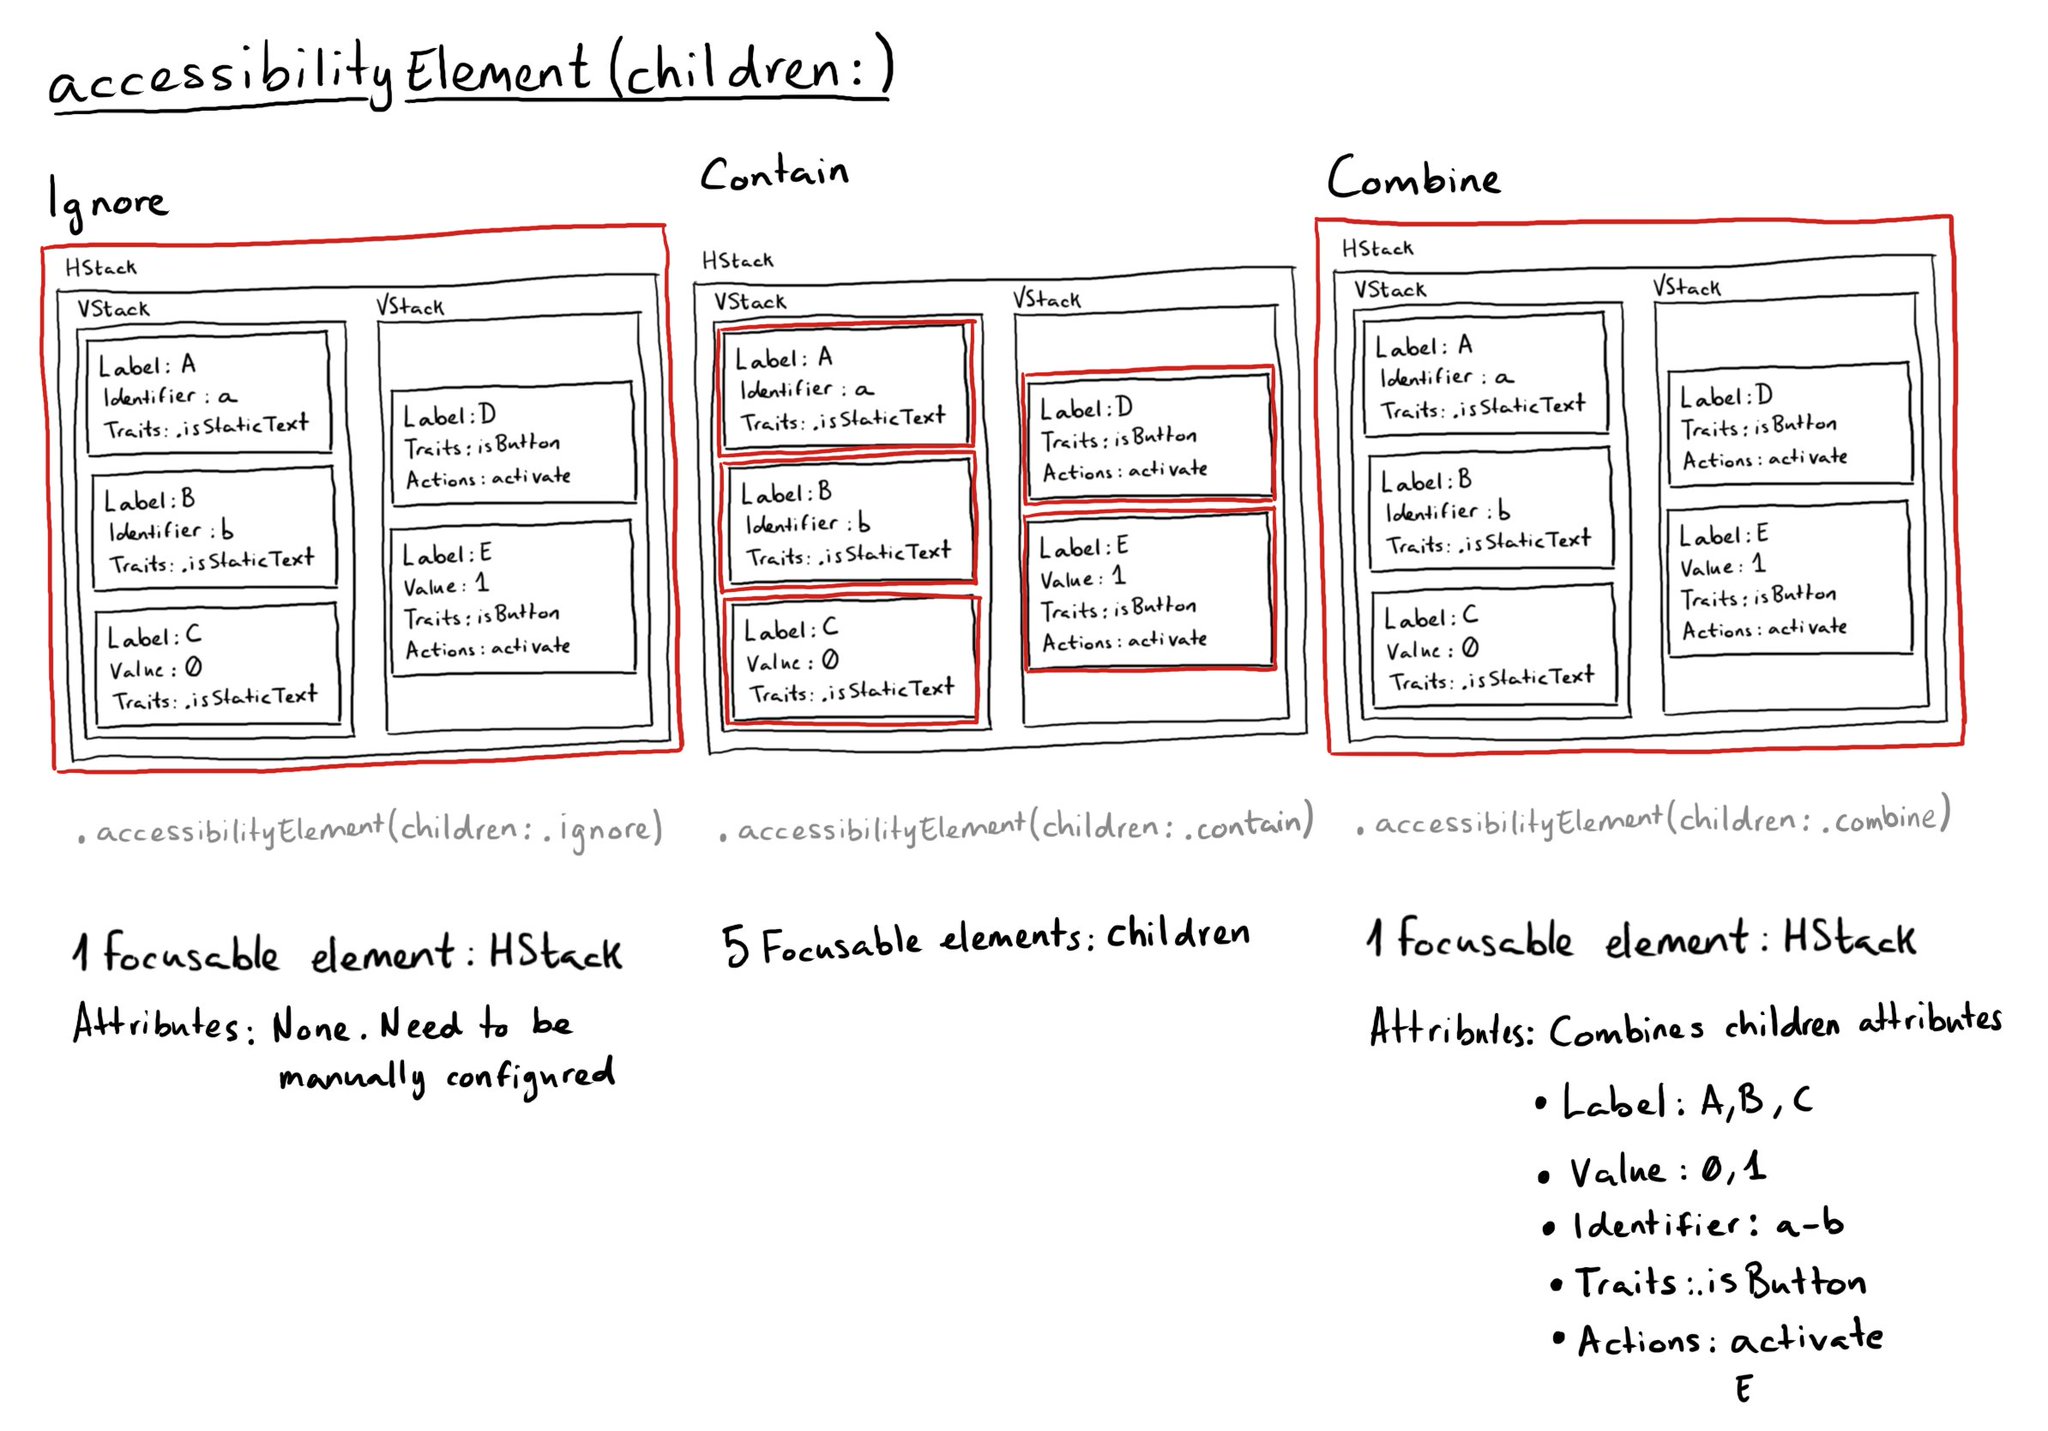 accessibilityElement(children:)
Ignore
HStack
VStack
Label: A
Identifier: a
Traits: .isStaticText
Label: B
Identifier: b
Traits: .isStaticText
Label: C
Value: 0
Traits: .isStaticText
VStack
Label: D
Traits: isButton
Actions: activate
Label: E
Value: 1
Traits: isButton
Actions: activate
.accessibilityElement(children: .ignore)
1 focusable element: HStack
Attributes: None. Need to be
manually configured
Contain
HStack
VStack
Label: A
Identifier: a
Traits: .isStaticText
Label: B
Identifier: b
Traits: .isStaticText
Label: C
Value: 0
Traits: .isStaticText
VStack
Label: D
Traits: isButton
Actions: activate
Label: E
Value: 1
Traits: isButton
Actions: activate
.accessibilityElement(children: .contain)
5 Focusable elements: children
Combine
HStack
VStack
Label: A
Identifier: a
Traits: .isStaticText
Label: B
Identifier: b
Traits: .isStaticText
Label: C
Value: 0
Traits: .isStaticText
VStack
Label: D
Traits: isButton
Actions: activate
Label: E
Value: 1
Traits: isButton
Actions: activate
.accessibilityElement(children: .combine)
1 focusable element: HStack
Attributes: Combines children attributes
• Label: A, B, C
• Value: 0, 1
• Identifier: a-b
• Traits: .isButton
• Actions: activate
E